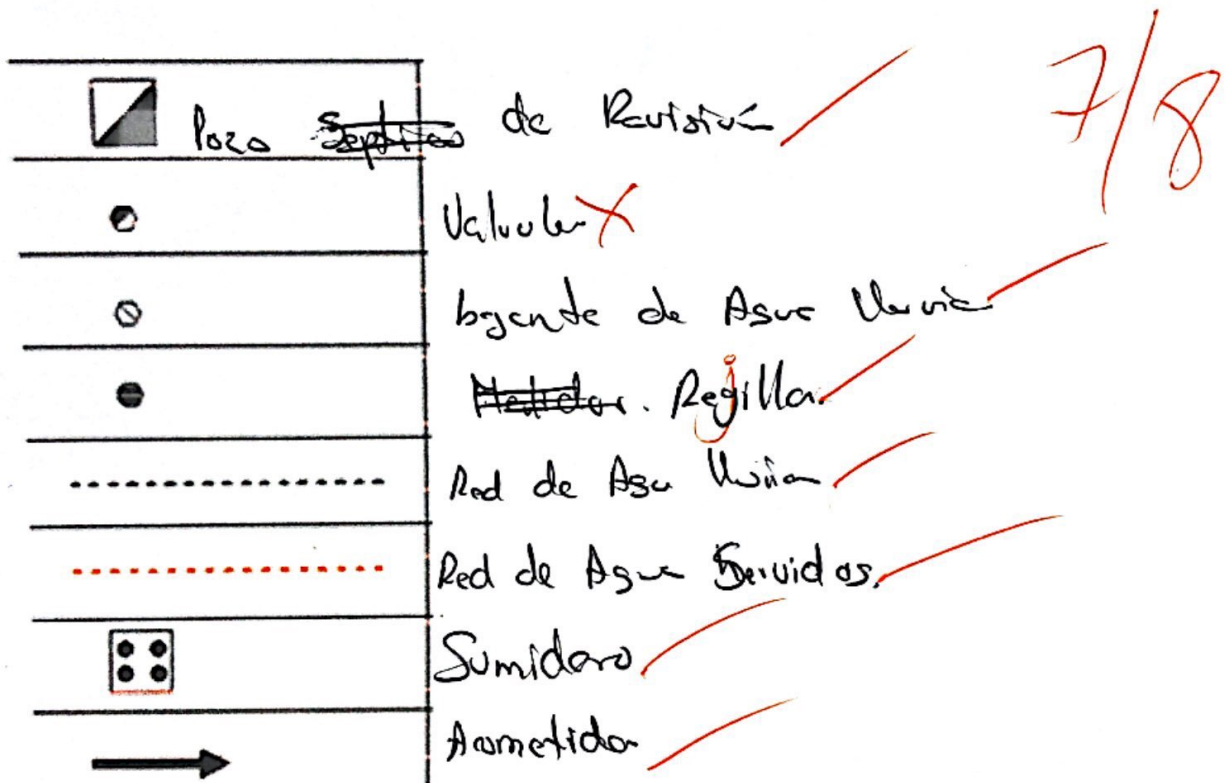 7/8
Pozo Septico de Revisión
Valvula
bajante de Agua lluvia
Medidor. Regilla.
j
Red de Agu lluvia
Red de Agua Servidas.
Sumidero
Acometida